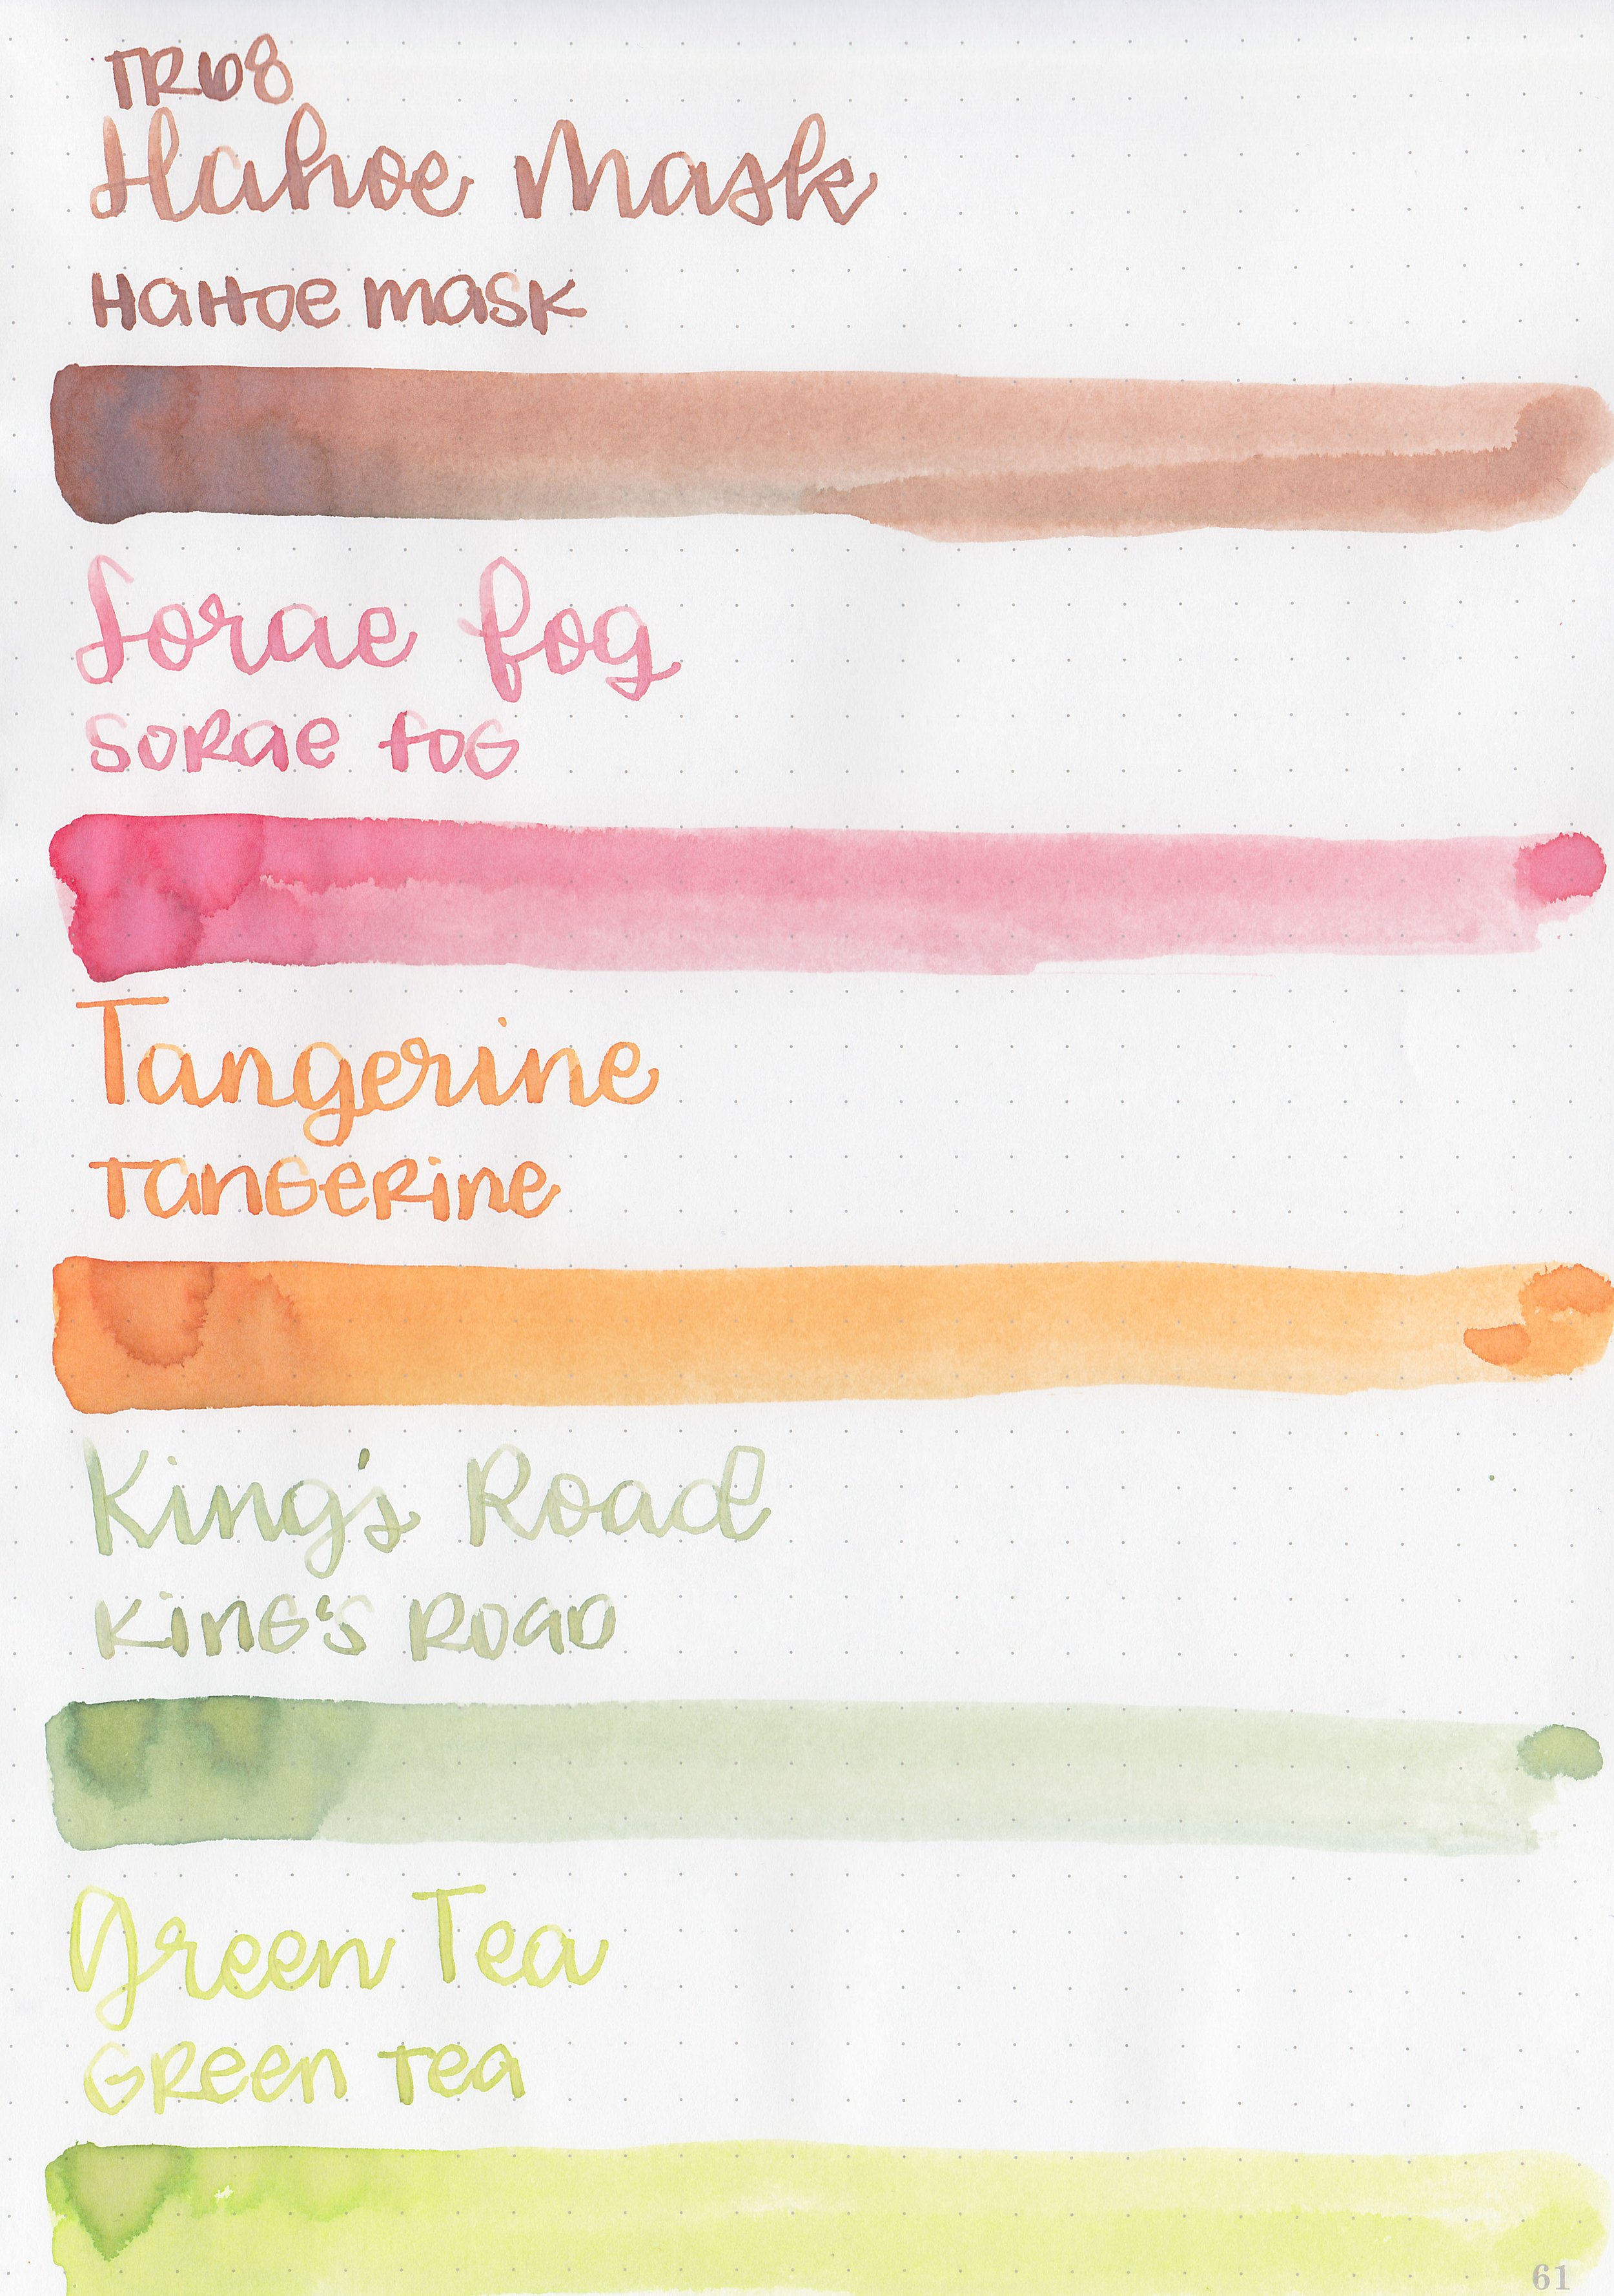 TR68
Hahoe Mask
HaHoe mask
Sorae fog
SORae foG
Tangerine
TanGeRine
King's Road
KinG's ROaD
Green Tea
GReen Tea
61